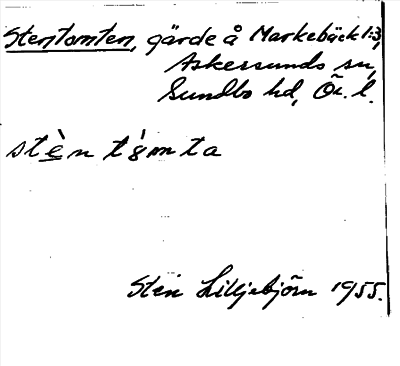 Stentomten, gärde å Markebäck 1:3,
Askersunds sn,
Sundbo hd, Ör. l.
stèn tòmta
Sten Liljebjörn 1955.